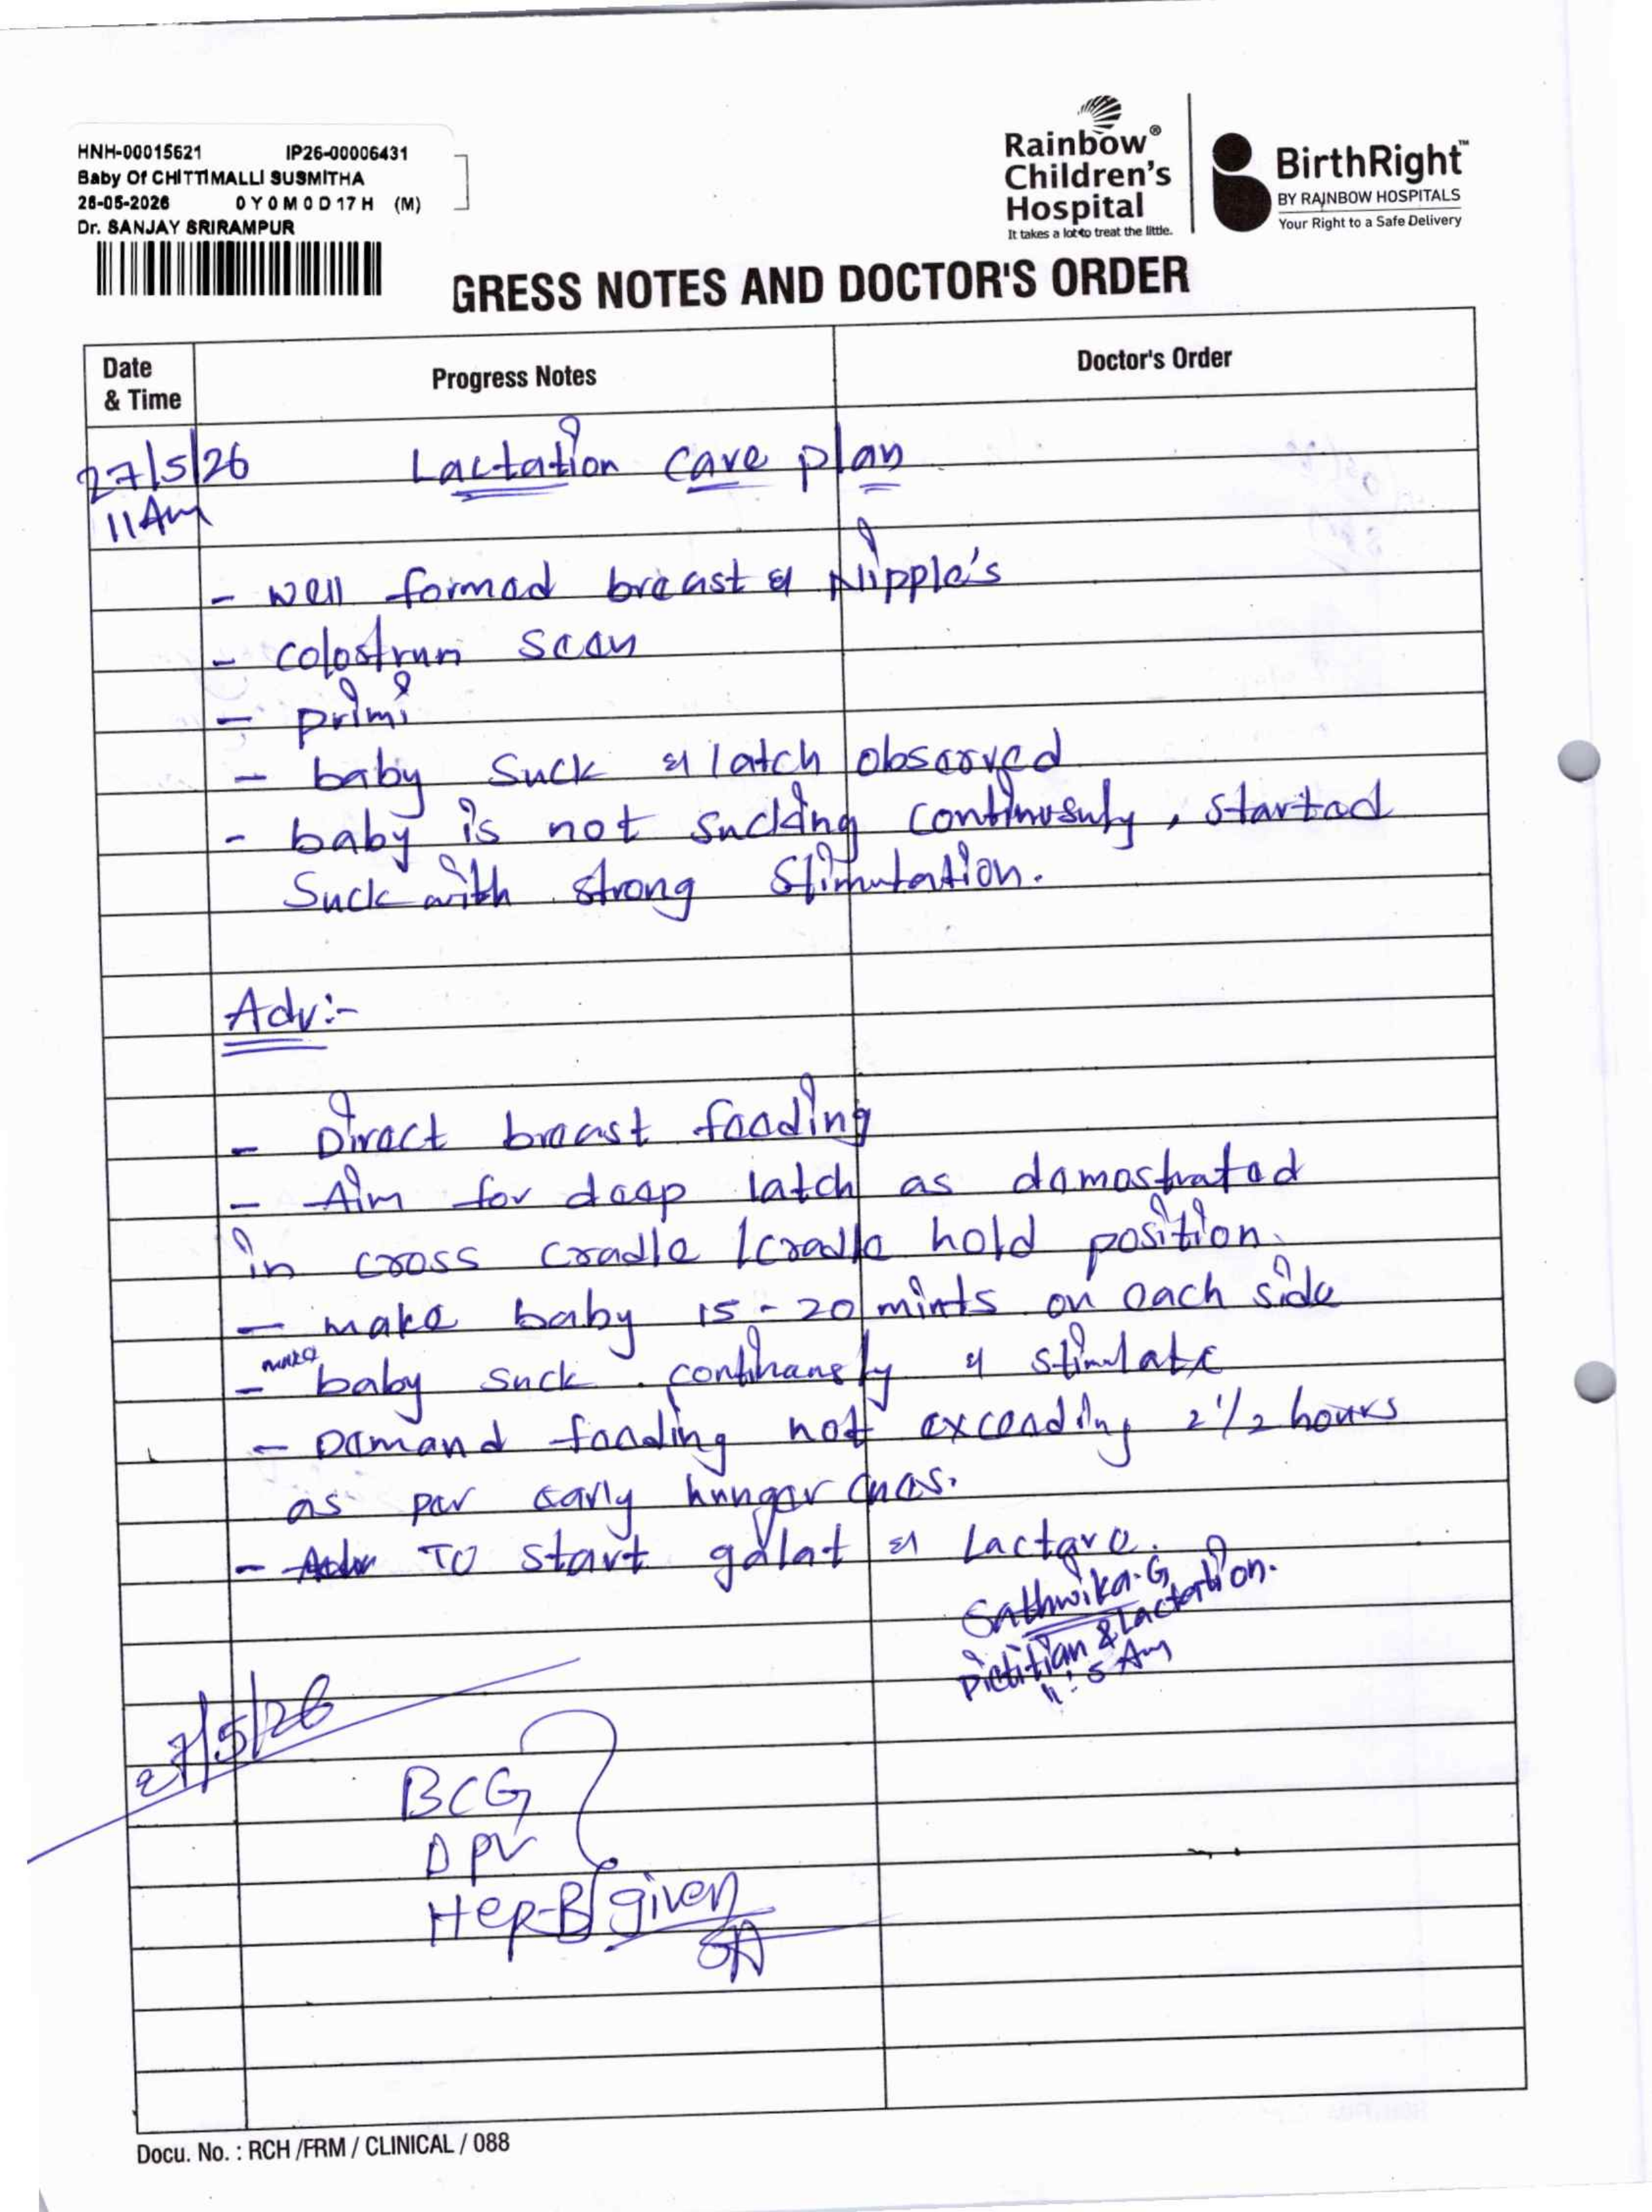 HNH-00015621 IP26-00006431
Baby Of CHITTIMALLI SUSMITHA
26-05-2026 0 Y 0 M 0 D 17 H (M)
Dr. SANJAY SRIRAMPUR
Rainbow®
Children's
Hospital
It takes a lot to treat the little.
BirthRight™
BY RAINBOW HOSPITALS
Your Right to a Safe Delivery
GRESS NOTES AND DOCTOR'S ORDER
Date & Time Progress Notes Doctor's Order
27/5/26 Lactation care plan
11 Am
- well formed breast & Nipple's
- colostrum scan
- primi
- baby suck & latch observed
- baby is not sucking continuosuly, started
suck with strong stimutation.
Adv:-
- Direct breast feeding
- Aim for deep latch as demostrated
in cross cradle / cradle hold position.
- make baby 15-20 mints on each side
- make baby suck continuosly & stimulate
- Demand feeding not exceeding 2 1/2 hours
as per early hunger cues.
- To start galat & Lactare.
Sathwika.G
Dietitian & Lactation.
11:5 Am
27/5/26
BCG
OPV
Hep-B given
Docu. No. : RCH /FRM / CLINICAL / 088